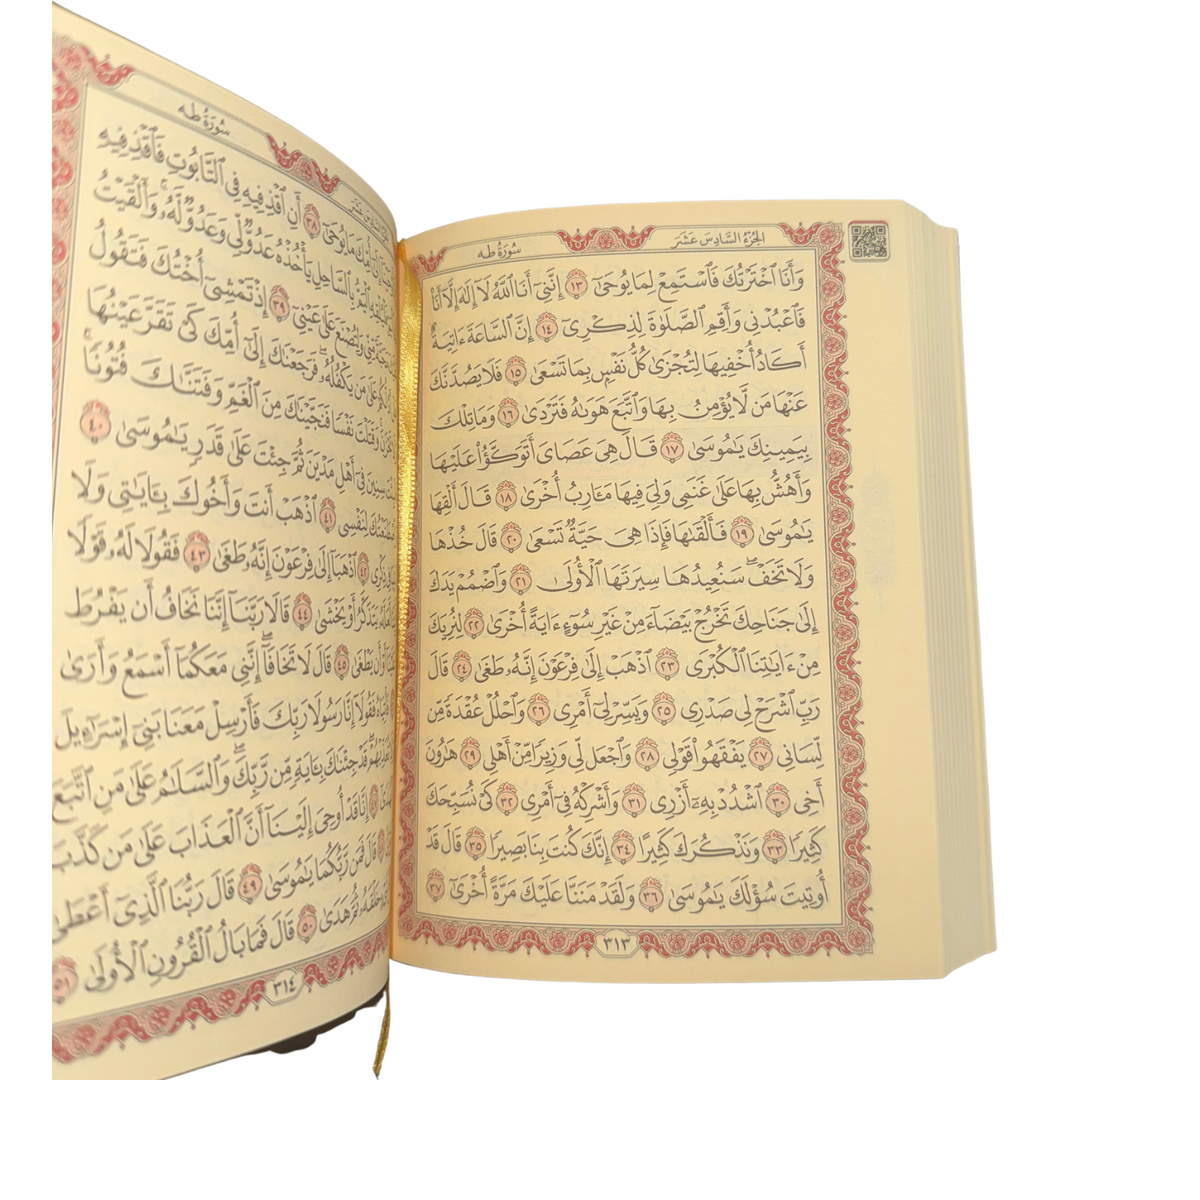 الجزء السادس عشر
سورة طه
وَأَنَا ٱخْتَرْتُكَ فَٱسْتَمِعْ لِمَا يُوحَىٰٓ ١٣ إِنَّنِىٓ أَنَا ٱللَّهُ لَآ إِلَٰهَ إِلَّآ أَنَا۠
فَٱعْبُدْنِى وَأَقِمِ ٱلصَّلَوٰةَ لِذِكْرِىٓ ١٤ إِنَّ ٱلسَّاعَةَ ءَاتِيَةٌ
أَكَادُ أُخْفِيهَا لِتُجْزَىٰ كُلُّ نَفْسٍۭ بِمَا تَسْعَىٰ ١٥ فَلَا يَصُدَّنَّكَ
عَنْهَا مَن لَّا يُؤْمِنُ بِهَا وَٱتَّبَعَ هَوَىٰهُ فَتَرْدَىٰ ١٦ وَمَا تِلْكَ
بِيَمِينِكَ يَٰمُوسَىٰ ١٧ قَالَ هِىَ عَصَاىَ أَتَوَكَّؤُا۟ عَلَيْهَا
وَأَهُشُّ بِهَا عَلَىٰ غَنَمِى وَلِىَ فِيهَا مَـَٔارِبُ أُخْرَىٰ ١٨ قَالَ أَلْقِهَا
يَٰمُوسَىٰ ١٩ فَأَلْقَىٰهَا فَإِذَا هِىَ حَيَّةٌ تَسْعَىٰ ٢٠ قَالَ خُذْهَا
وَلَا تَخَفْ ۖ سَنُعِيدُهَا سِيرَتَهَا ٱلْأُولَىٰ ٢١ وَٱضْمُمْ يَدَكَ
إِلَىٰ جَنَاحِكَ تَخْرُجْ بَيْضَآءَ مِنْ غَيْرِ سُوٓءٍ ءَايَةً أُخْرَىٰ ٢٢ لِنُرِيَكَ
مِنْ ءَايَٰتِنَا ٱلْكُبْرَى ٢٣ ٱذْهَبْ إِلَىٰ فِرْعَوْنَ إِنَّهُۥ طَغَىٰ ٢٤ قَالَ
رَبِّ ٱشْرَحْ لِى صَدْرِى ٢٥ وَيَسِّرْ لِىٓ أَمْرِى ٢٦ وَٱحْلُلْ عُقْدَةً مِّن
لِّسَانِى ٢٧ يَفْقَهُوا۟ قَوْلِى ٢٨ وَٱجْعَل لِّى وَزِيرًا مِّنْ أَهْلِى ٢٩ هَٰرُونَ
أَخِى ٣٠ ٱشْدُدْ بِهِۦٓ أَزْرِى ٣١ وَأَشْرِكْهُ فِىٓ أَمْرِى ٣٢ كَىْ نُسَبِّحَكَ
كَثِيرًا ٣٣ وَنَذْكُرَكَ كَثِيرًا ٣٤ إِنَّكَ كُنتَ بِنَا بَصِيرًا ٣٥ قَالَ قَدْ
أُوتِيتَ سُؤْلَكَ يَٰمُوسَىٰ ٣٦ وَلَقَدْ مَنَنَّا عَلَيْكَ مَرَّةً أُخْرَىٰٓ ٣٧
٣١٣
سورة طه
مَا يُوحَىٰٓ ٣٨ أَنِ ٱقْذِفِيهِ فِى ٱلتَّابُوتِ فَٱقْذِفِيهِ
بِٱلسَّاحِلِ يَأْخُذْهُ عَدُوٌّ لِّى وَعَدُوٌّ لَّهُۥ ۚ وَأَلْقَيْتُ
وَلِتُصْنَعَ عَلَىٰ عَيْنِىٓ ٣٩ إِذْ تَمْشِىٓ أُخْتُكَ فَتَقُولُ
عَلَىٰ مَن يَكْفُلُهُۥ ۖ فَرَجَعْنَٰكَ إِلَىٰٓ أُمِّكَ كَىْ تَقَرَّ عَيْنُهَا
وَقَتَلْتَ نَفْسًا فَنَجَّيْنَٰكَ مِنَ ٱلْغَمِّ وَفَتَنَّٰكَ فُتُونًا ۚ
سِنِينَ فِىٓ أَهْلِ مَدْيَنَ ثُمَّ جِئْتَ عَلَىٰ قَدَرٍ يَٰمُوسَىٰ ٤٠
لِنَفْسِى ٤١ ٱذْهَبْ أَنتَ وَأَخُوكَ بِـَٔايَٰتِى وَلَا
ذِكْرِى ٤٢ ٱذْهَبَآ إِلَىٰ فِرْعَوْنَ إِنَّهُۥ طَغَىٰ ٤٣ فَقُولَا لَهُۥ قَوْلًا
يَتَذَكَّرُ أَوْ يَخْشَىٰ ٤٤ قَالَا رَبَّنَآ إِنَّنَا نَخَافُ أَن يَفْرُطَ
أَوْ أَن يَطْغَىٰ ٤٥ قَالَ لَا تَخَافَآ ۖ إِنَّنِى مَعَكُمَآ أَسْمَعُ وَأَرَىٰ
فَقُولَآ إِنَّا رَسُولَا رَبِّكَ فَأَرْسِلْ مَعَنَا بَنِىٓ إِسْرَٰٓءِيلَ
قَدْ جِئْنَٰكَ بِـَٔايَةٍ مِّن رَّبِّكَ ۖ وَٱلسَّلَٰمُ عَلَىٰ مَنِ ٱتَّبَعَ
إِنَّا قَدْ أُوحِىَ إِلَيْنَآ أَنَّ ٱلْعَذَابَ عَلَىٰ مَن كَذَّبَ
قَالَ فَمَن رَّبُّكُمَا يَٰمُوسَىٰ ٤٩ قَالَ رَبُّنَا ٱلَّذِىٓ أَعْطَىٰ
خَلْقَهُۥ ثُمَّ هَدَىٰ ٥٠ قَالَ فَمَا بَالُ ٱلْقُرُونِ ٱلْأُولَىٰ ٥١
٣١٤